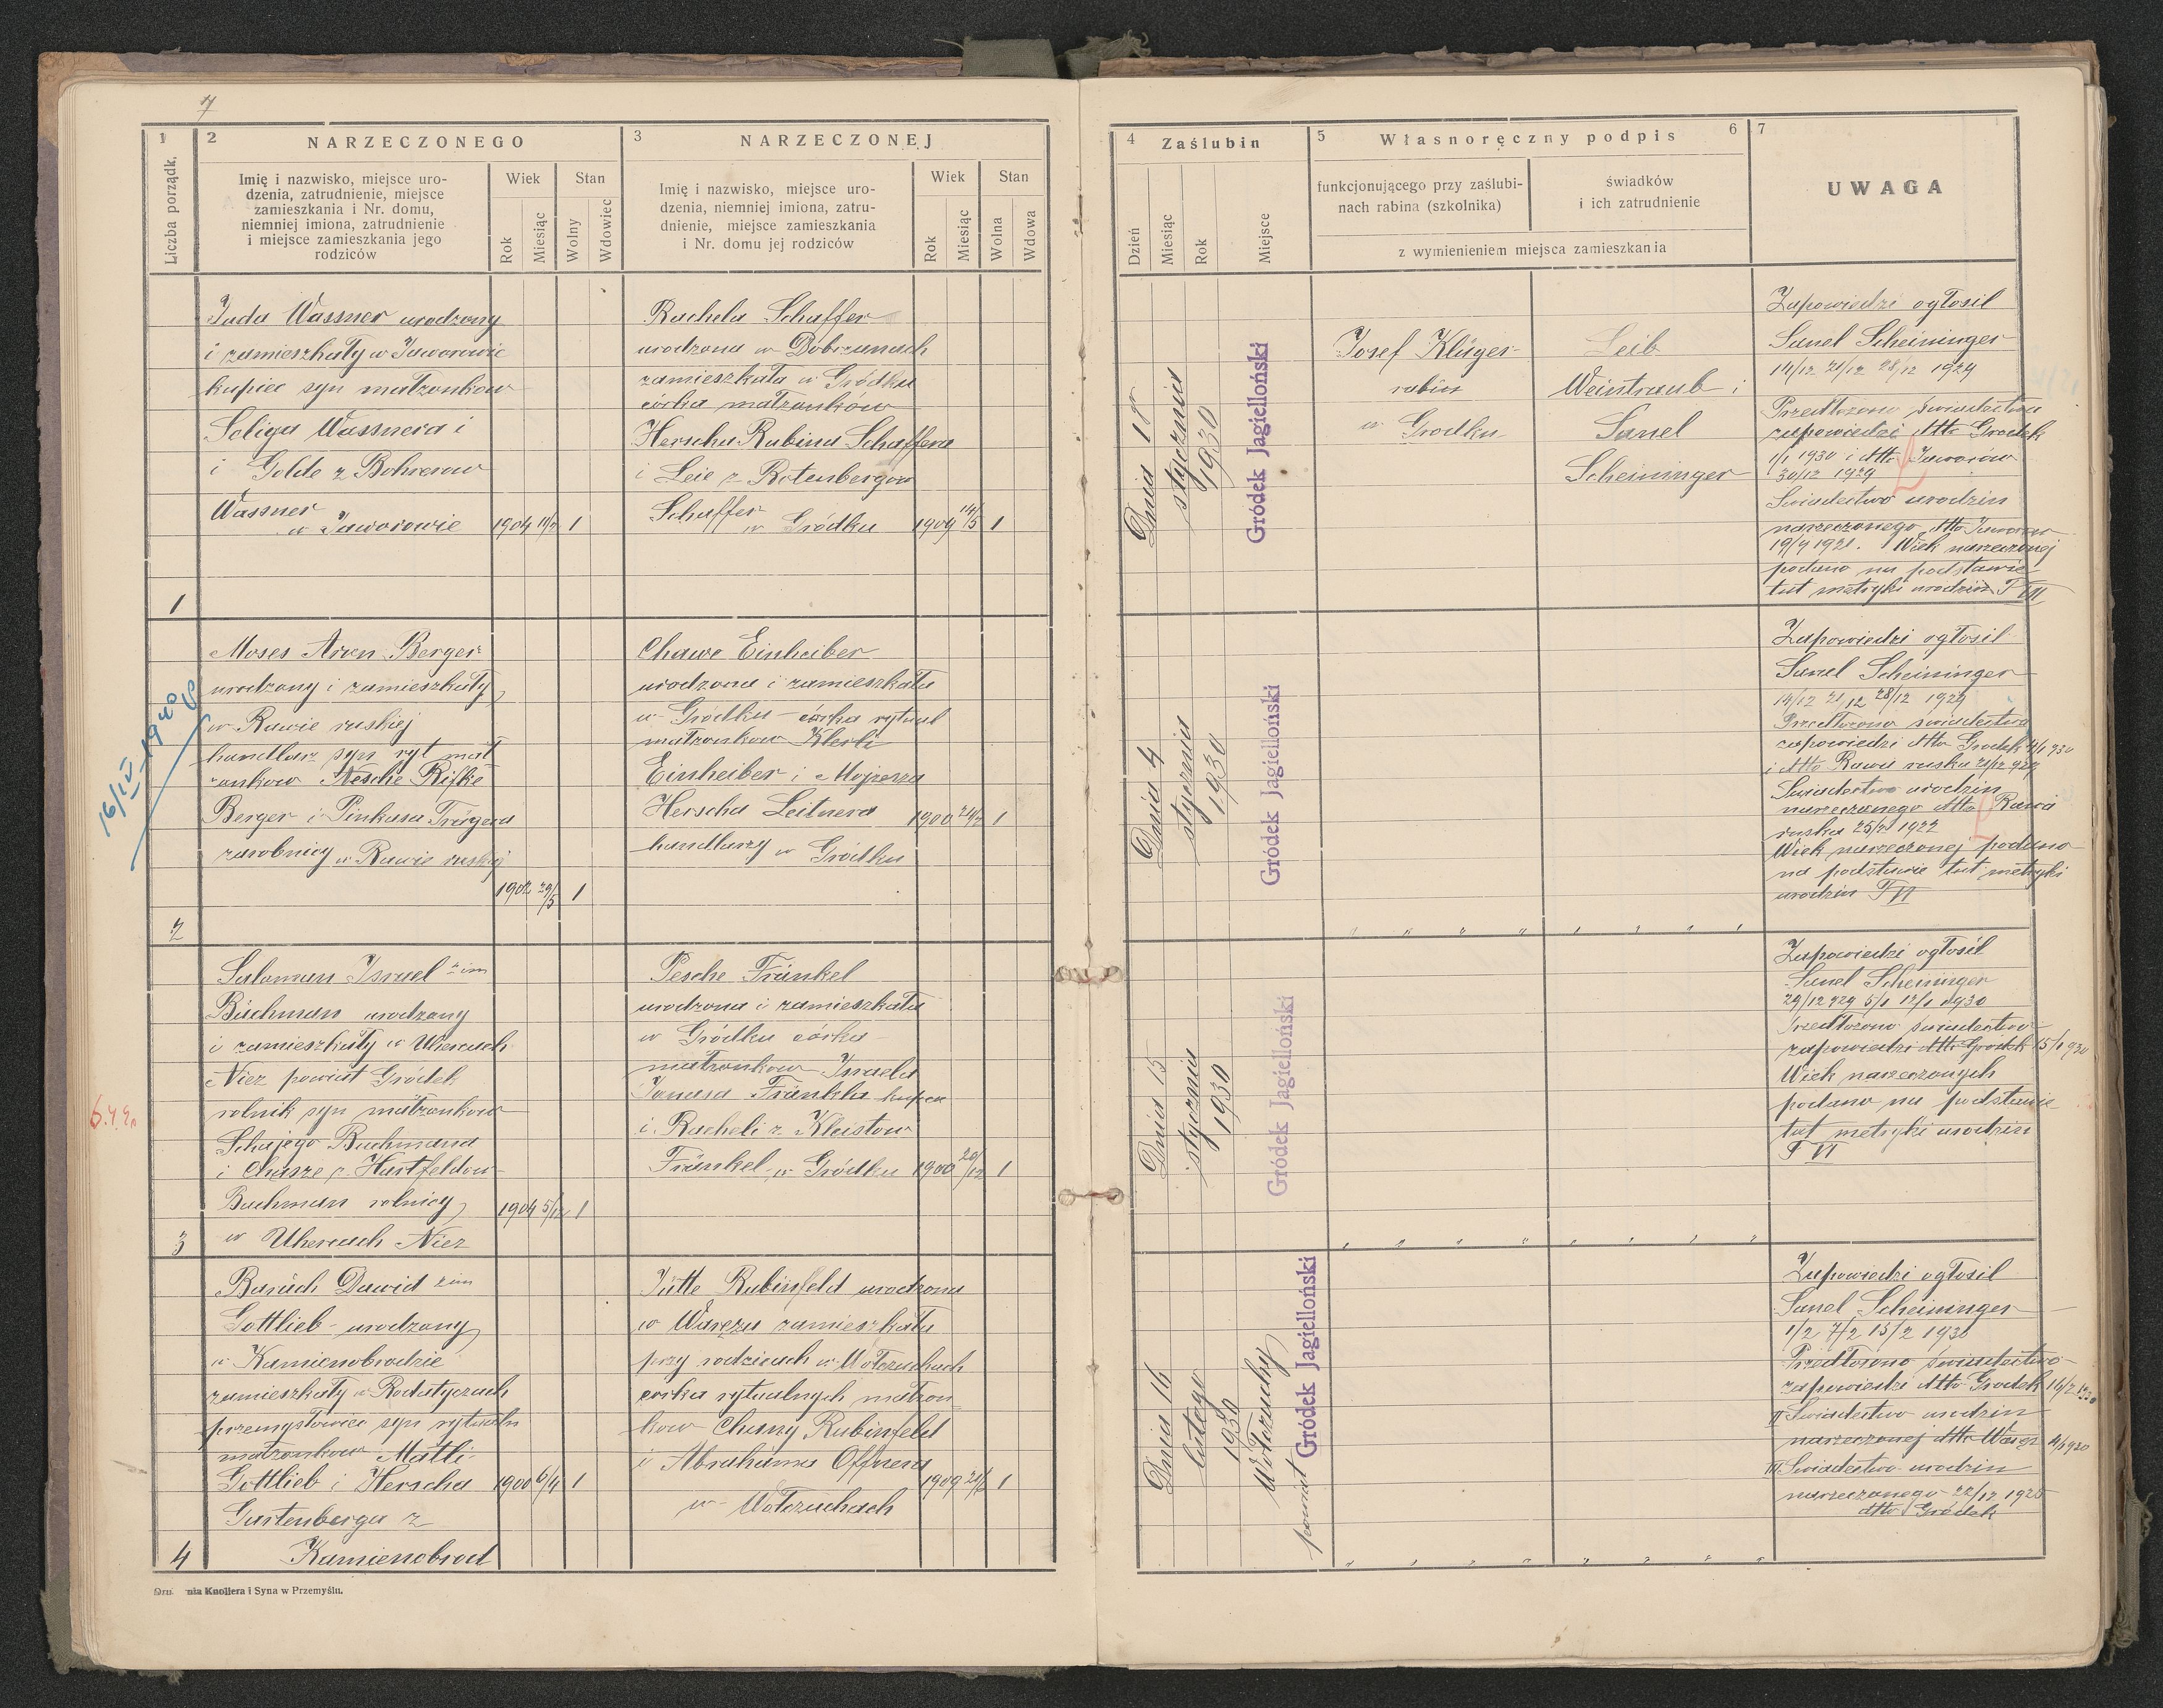 7
1
2
NARZECZONEGO
3
NARZECZONEJ
Liczba porządk.
Imię i nazwisko, miejsce uro-
dzenia, zatrudnienie, miejsce
zamieszkania i Nr. domu,
niemniej imiona, zatrudnienie
i miejsce zamieszkania jego
rodziców
Wiek
Stan
Rok
Miesiąc
Wolny
Wdowiec
Imię i nazwisko, miejsce uro-
dzenia, niemniej imiona, zatru-
dnienie, miejsce zamieszkania
i Nr. domu jej rodziców
Wiek
Stan
Rok
Miesiąc
Wolna
Wdowa
Juda Wassner urodzony
i zamieszkały w Jaworowie
kupiec syn małzonkow
Seliga Wassnera i
i Golde z
Wassner
w Jaworowie 1904 1
1
Rachela Schaffer
urodzona w Dobrzanach
zamieszkała w Gródku
córka małzonków
Herscha Rubina Schaffera
i Leie z Rotenbergow
Schaffer
w Gródku 1909 14/5 1
Moses Aron Berger
urodzony i zamieszkały
w Rawie ruskiej
handlarz syn ryt mał
zonkow Nesche Rifke
Berger i Pinkasa Trägera
zarobnicy w Rawie ruskiej
1902 29/5 1
2
16/IV 1940
Chawe Einheiber
urodzona i zamieszkała
w Gródku córka rytual
małzonkow Klerli
Einheiber i Mojzesza
Herscha Leitnera 1900 1
handlarzy w Gródku
Salaman Israel 2 im
Büchman urodzony
i zamieszkały w Uhercach
Niez powiat Gródek
rolnik syn małzonkow
Schajego Buchmana
i Chasze z Hartfeldow
Buchman rolnicy 1904 5/12 1
w Uhercach Niez
3
Pesche Fränkel
urodzona i zamieszkała
w Gródku córka
małzonkow Israela
Jonasa Fränkla kupca
i Racheli z Kleistow
Fränkel w Gródku 1900 20/12 1
Baruch Dawid 2 im
Gottlieb urodzony
w Kamienobrodzie
zamieszkały w Rodatyczach
przemysłowiec syn rytualn
małzonkow Matli
Gottlieb i Herscha 1900 6/4 1
Gartenberga z
Kamienobrod
4
Jütte Rubinfeld urodzona
w Waręzu zamieszkała
przy rodzicach w Wołczuchach
corka rytualnych małzon
kow Chany Rubinfeld
i Abrahama Offnera 1909 1
w Wołczuchach
nia Knollera i Syna w Przemyślu.
4
Zaślubin
5
Własnoręczny podpis
6
7
UWAGA
Dzień
Miesiąc
Rok
Miejsce
funkcjonującego przy zaślubi-
nach rabina (szkolnika)
świadków
i ich zatrudnienie
z wymienieniem miejsca zamieszkania
Dnia
stycznia
1930
Gródek Jagielloński
Josef Klüger
rabin
w Grodku
Leib
Weintraub i
Sanel
Scheininger
Zapowiedzi ogłosił
Sanel Scheininger
14/12 21/12 28/12 1929
Przedłozono świadectwa
zapowiedzi dtto Grodek
1/1 1930 i dtto Jaworów
30/12 1929
Świadectwo urodzin
narzeczonego dtto Jaworow
19/9 1921. Wiek narzeczonej
podano na podstawie
tut metryki urodzin T VII
Dnia 4
stycznia
1930
Gródek Jagielloński
Zapowiedzi ogłosił
Sanel Scheininger
14/12 21/12 28/12 1929
Przedłozono świadectwa
zapowiedzi dtto Grodek 4/1 930
i dtto Rawa ruska 21/12 929
Świadectwo urodzin
narzeczonego dtto Rawa
ruska 25/2 1922
Wiek narzeczonej podano
na podstawie tut metryki
urodzin T VI
Dnia 15
stycznia
1930
Gródek Jagielloński
Zapowiedzi ogłosił
Sanel Scheininger
29/12 929 5/1 12/1 1930
Przedłozono świadectwo
zapowiedzi dtto Grodek 15/1 930
Wiek narzeczonych
podano na podstawie
tut metryki urodzin
T VI
Dnia 16
lutego
1930
Wołczuchy
powiat Gródek Jagielloński
Zapowiedzi ogłosił
Sanel Scheininger
1/2 7/2 15/2 1930
Przedłozono świadectwo
zapowiedzi dtto Grodek 16/2 1930
II Świadectwo urodzin
narzeczonej dtto
III Świadectwo urodzin
narzeczonego 22/12 1925
dtto Gródek